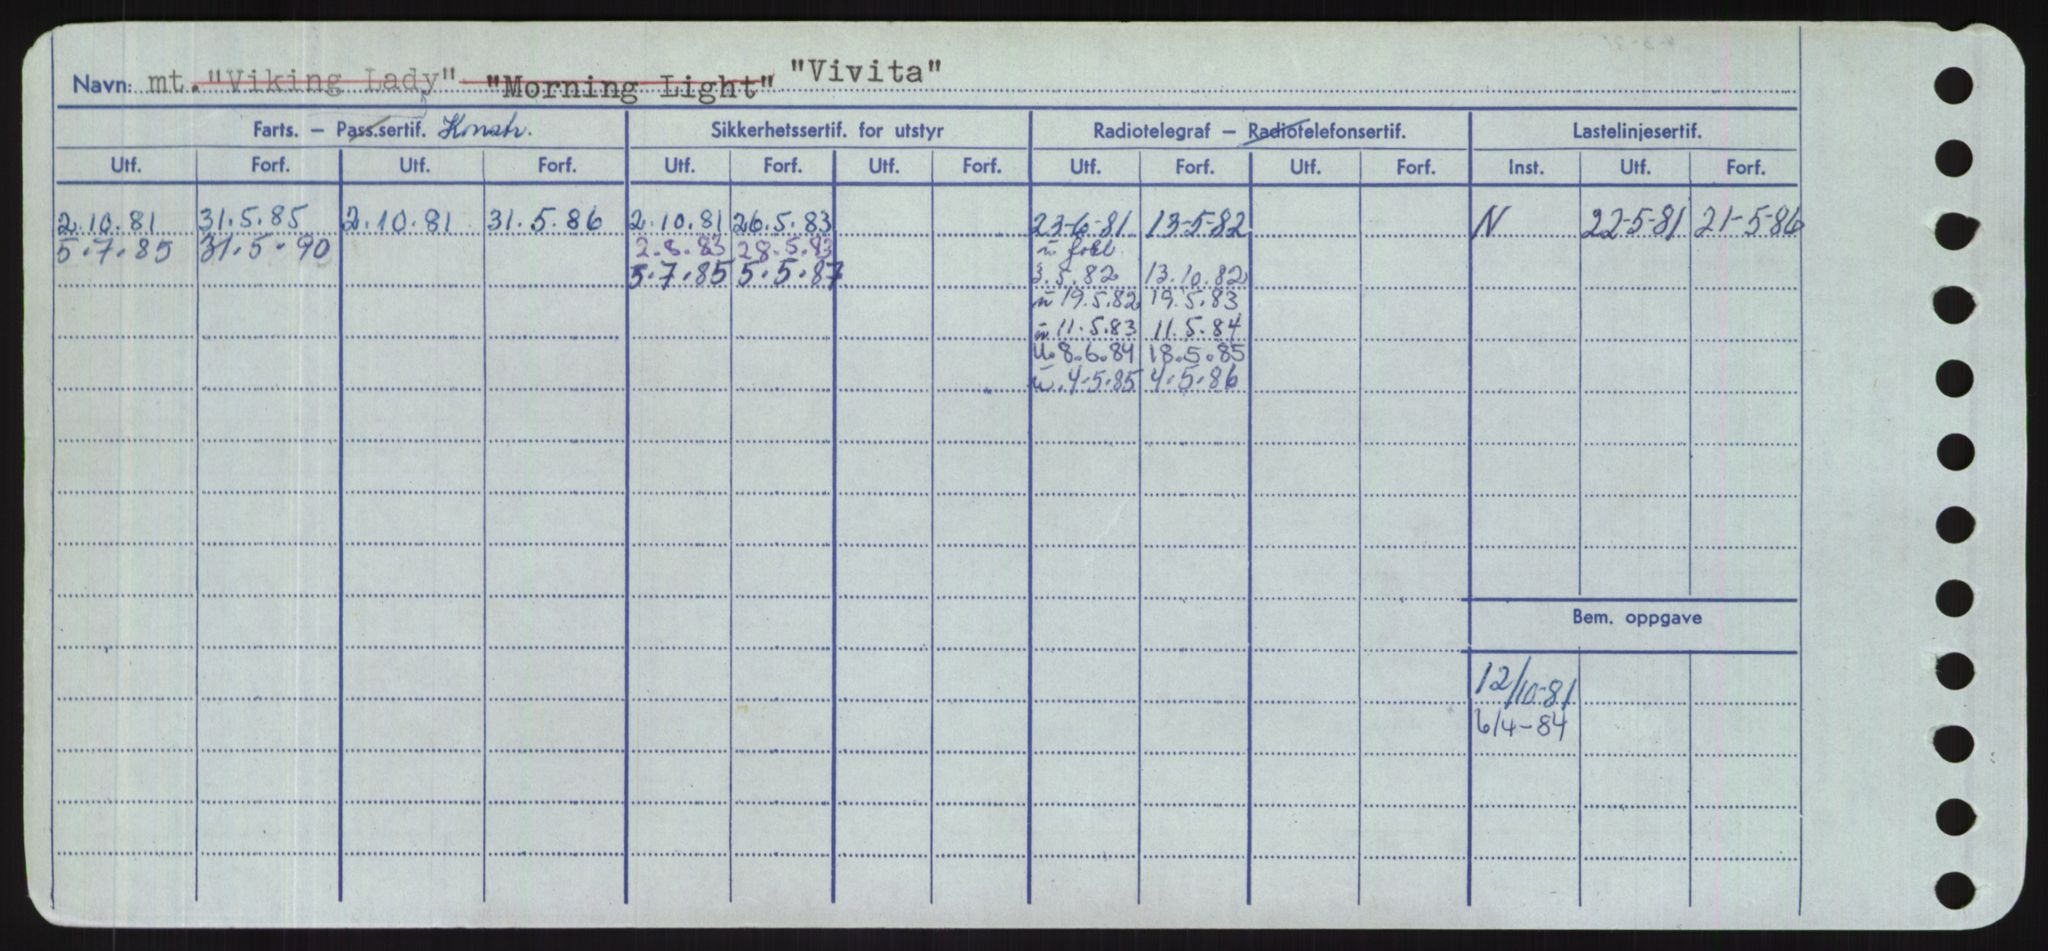 Navn: mt. "Viking Lady" "Morning Light" "Vivita"
Farts. — Pass.sertif. Konstr. Sikkerhetssertif. for utstyr Radiotelegraf — Radiotelefonsertif. Lastelinjesertif.
Utf. Forf. Utf. Forf. Utf. Forf. Utf. Forf. Utf. Forf. Utf. Forf. Inst. Utf. Forf.
2.10.81 31.5.85 2.10.81 31.5.86 2.10.81 26.5.83 23-6-81 13-5-82 N 22-5-81 21-5-86
5.7.85 31.5.90 2.8.83 28.5.83
5.7.85 5.5.87 3.5.82 13.10.82
19.5.82 19.5.83
11.5.83 11.5.84
8.6.84 18.5.85
4.5.85 4.5.86
Bem. oppgave
12/10-81
6/4-84